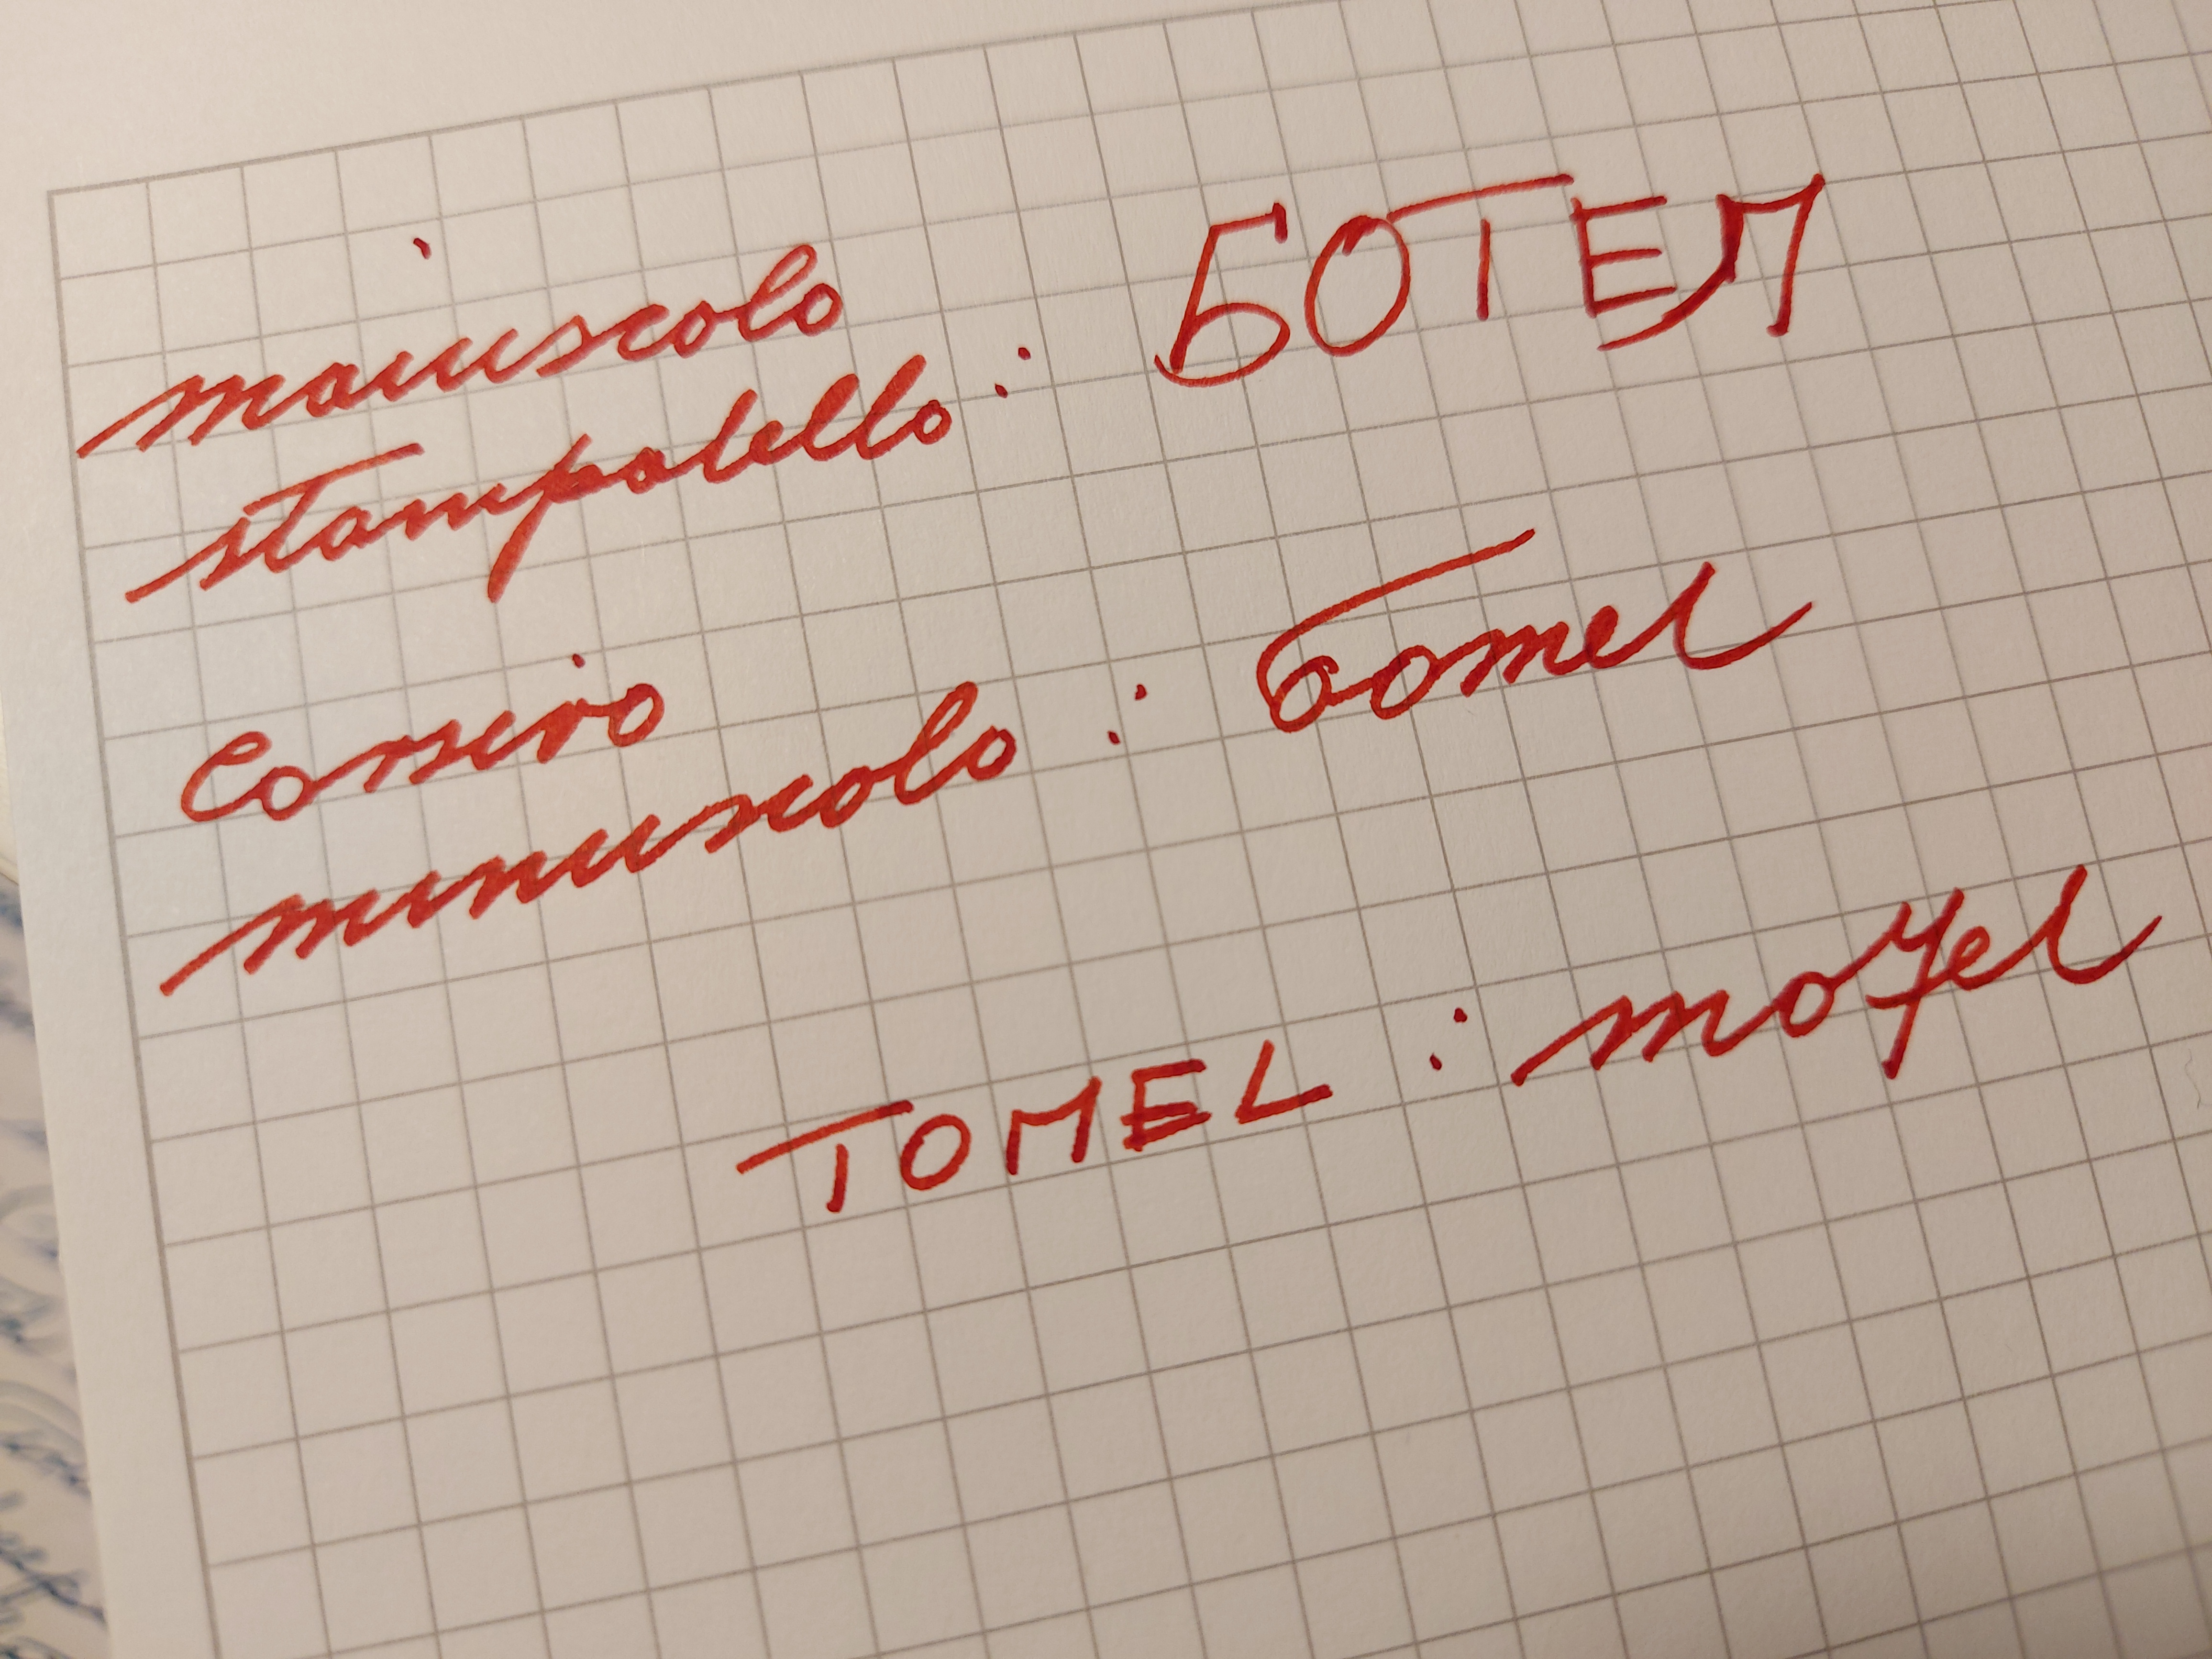 maiuscolo
stampatello : БОТЕЛ
corsivo
minuscolo : ботел
TOMEL : motel